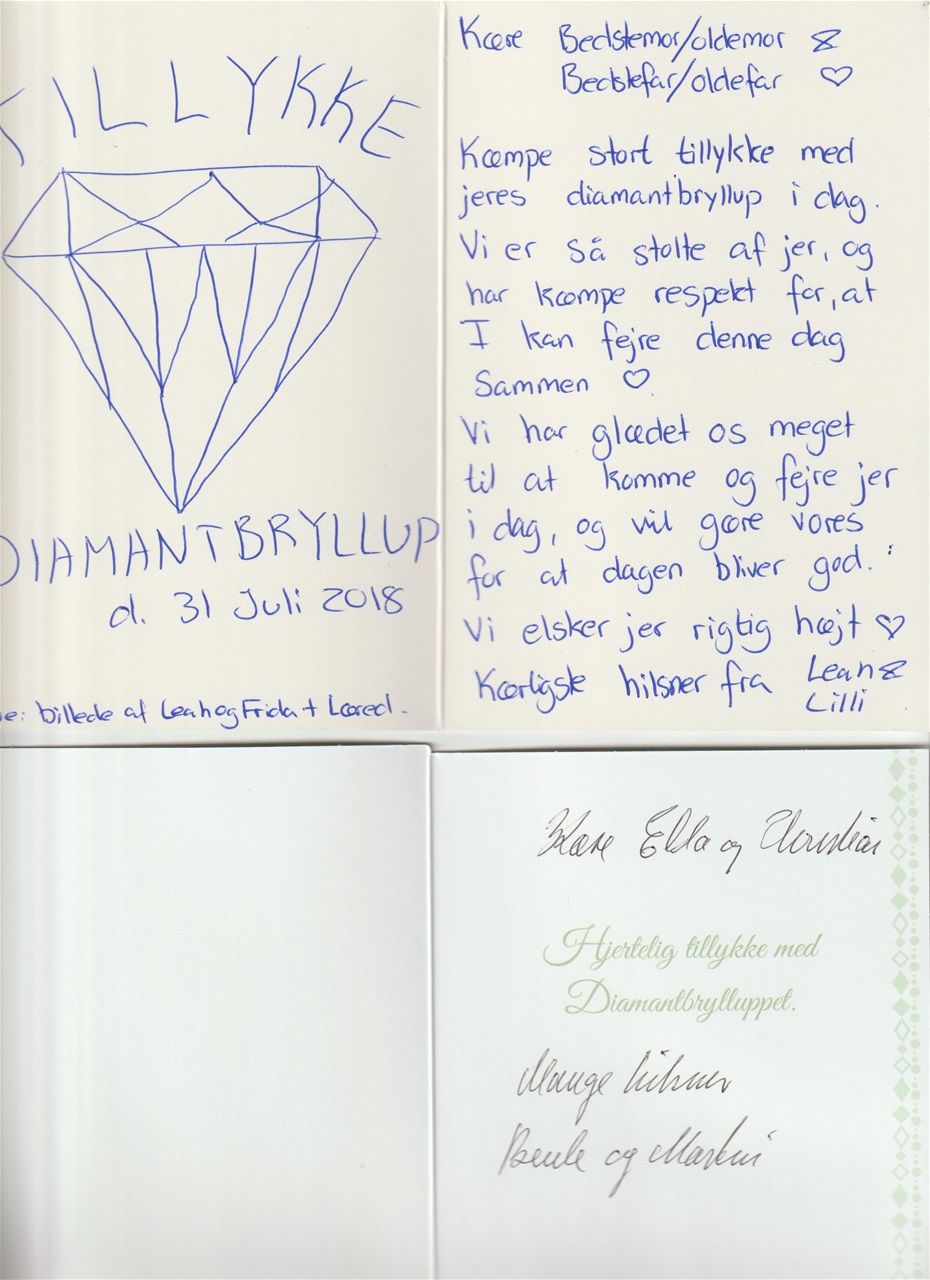 TILLYKKE
DIAMANTBRYLLUP
d. 31 Juli 2018
billede af Leah og Frida + Læred.
Kære Bedstemor/oldemor &
Bedstefar/oldefar ♡
Kæmpe stort tillykke med
jeres diamantbryllup i dag.
Vi er så stolte af jer, og
har kæmpe respekt for, at
I kan fejre denne dag
Sammen ♡
Vi har glædet os meget
til at komme og fejre jer
i dag, og vil gøre vores
for at dagen bliver god.
Vi elsker jer rigtig højt ♡
Kærligste hilsner fra Leah &
Lilli
Kære Elda og Christian
Hjertelig tillykke med
Diamantbrylluppet.
Mange hilsner
Bente og Martin